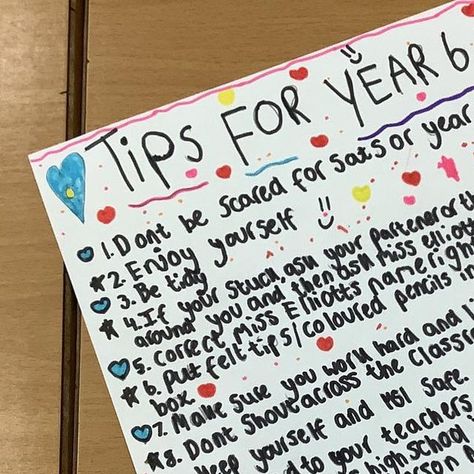 TIPS FOR YEAR 6
1. Dont be scared for sats or year
2. Enjoy yourself
3. Be tidy
4. If your stuck ask your partener or th
around you and then ask miss elliott
5. correct Miss Elliotts name right
6. put felt tips/coloured pencils
box.
7. Make sure you work hard and
8. Dont shout across the classr
keep yourself and safe.
to your teachers
highschool.